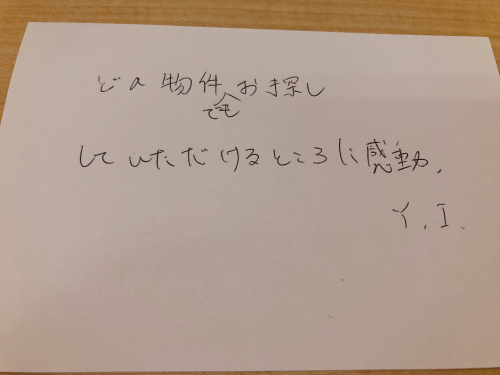 どの物件でもお探し
していただけるところに感動.
Y.I.